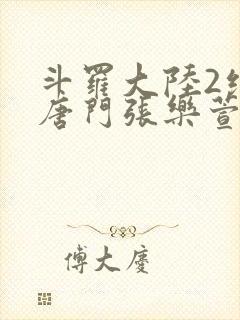 斗羅大陸2
唐門張樂萱
傅大慶